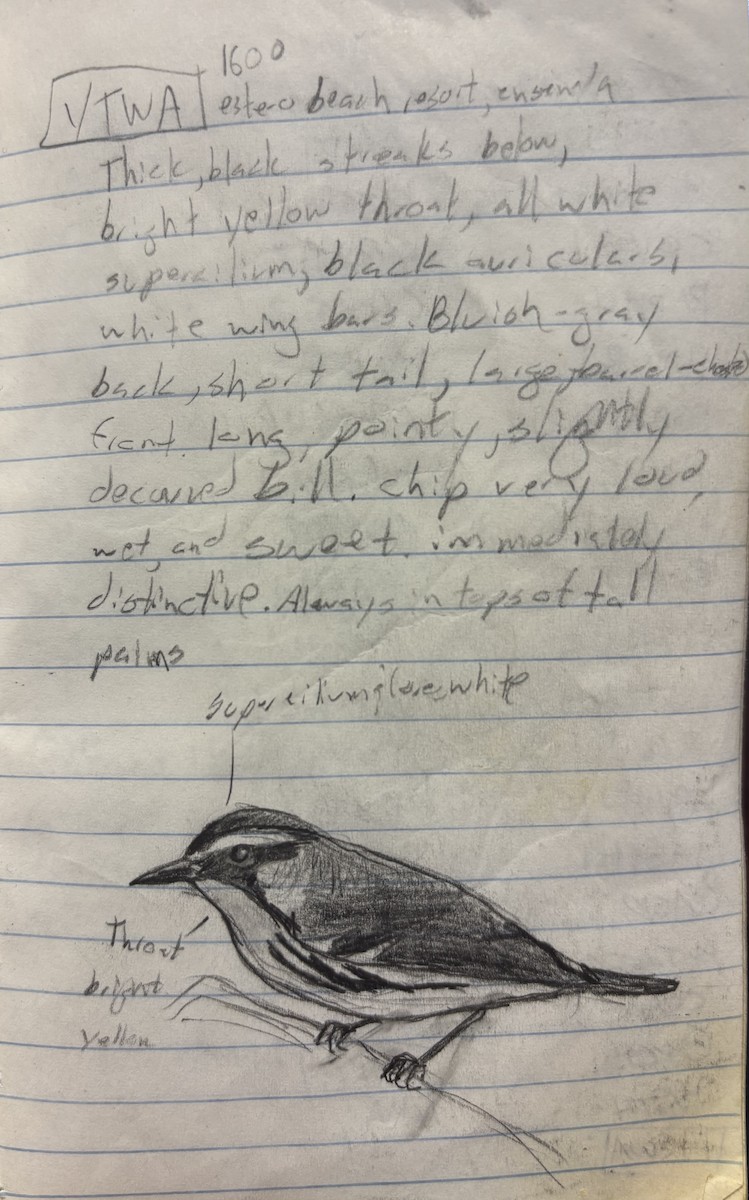 1600
YTWA estero beach resort,
Thick, black streaks below,
bright yellow throat, all white
supercilium, black auriculars,
white wing bars. Bluish-gray
back, short tail, large, barrel-chested
front. long, pointy, slightly
decurved bill. chip very loud,
wet, and sweet. immediately
distinctive. Always in tops of tall
palms
supercilium white
Throat
bright
yellow